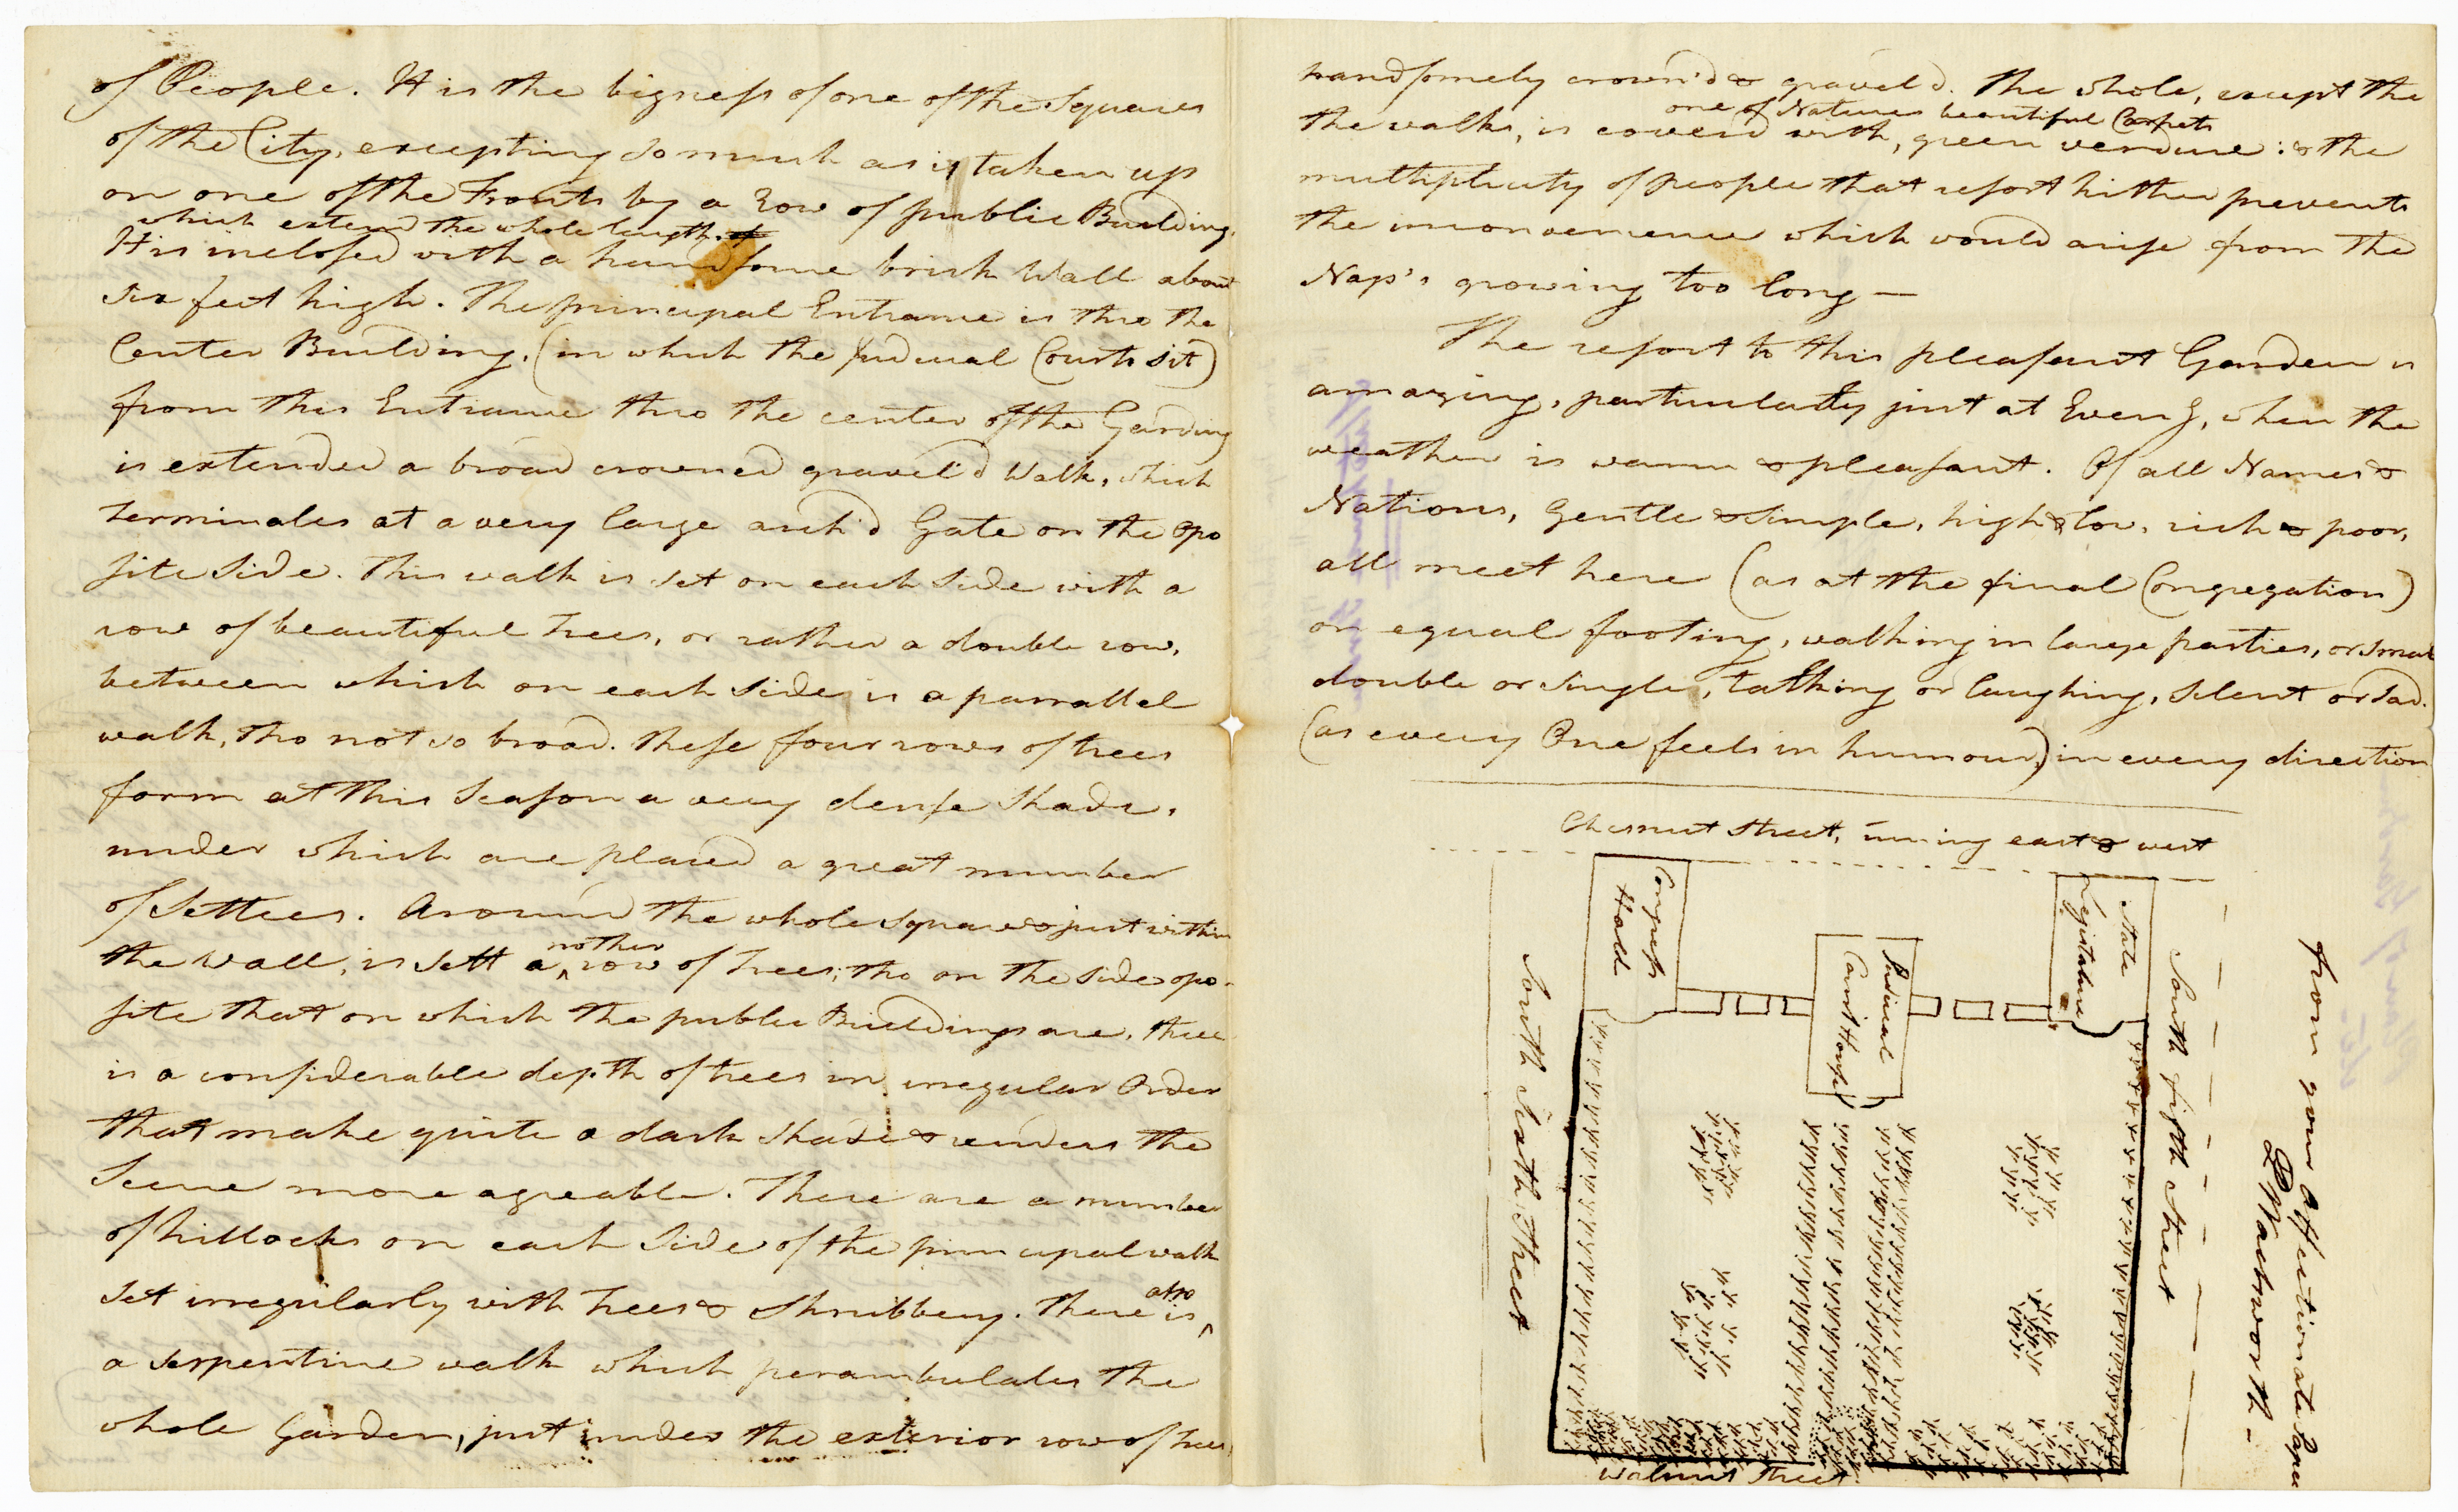 of People. It is the bigness of one of the Squares
of the City, excepting so much as is taken up
on one of the Fronts by a Row of public Buildings.
which extend the whole length.
It is inclosed with a handsome brick Wall about
six feet high. The principal Entrance is thro the
Center Building, (in which the Judicial Courts sit)
from this Entrance thro the center of the Garding
is extended a broad crowned gravel'd Walk, which
terminates at a very large arch'd Gate on the opo
site side. This walk is set on each side with a
row of beautiful trees, or rather a double row,
between which on each side is a parrallel
walk, tho not so broad. These four rows of trees
form at this Season a very dense Shade,
under which are placed a great number
of Settees. Around the whole square & just within
the Wall, is sett a nother row of trees; tho on the side opo-
site that on which the public Buildings are, there
is a considerable depth of trees in irregular Order
that make quite a dark shade & renders the
Scene more agreable. There are a number
of hillocks on each side of the principal walk
set irregularly with trees & Shrubbery. There is also
a serpentine walk which perambulates the
whole Garden, just under the exterior row of trees,
handsomely crown'd & gravel'd. The whole, except the
one of Natures beautiful Carpets
the walks, is coverd with, green verdure: & the
multiplicity of people that resort hither prevents
the inconvenience which would arise from the
Nap's growing too long —
The resort to this pleasant Garden is
amazing, particularly just at Eveng, when the
weather is warm & pleasant. Of all Names &
Nations, Gentle & simple, high & low, rich & poor,
all meet here (as at the final Congregation)
on equal footing, walking in large parties, or small
double or single, talking or laughing, silent or sad.
(as every One feels in humour,) in every direction
Chesnut Street, runing east & west
Congress
Hall
Judicial
Court House
State
Legislature
South Sixth Street
South fifth Street
Walnut Street
from your Affectionate Papa
D Wadsworth -